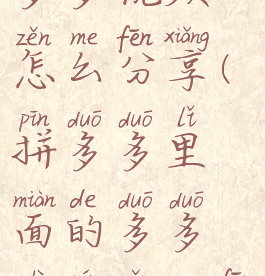 zěn me fēn xiǎng
怎么分享(
pīn duō duō lǐ
拼多多里
miàn de duō duō
面的多多